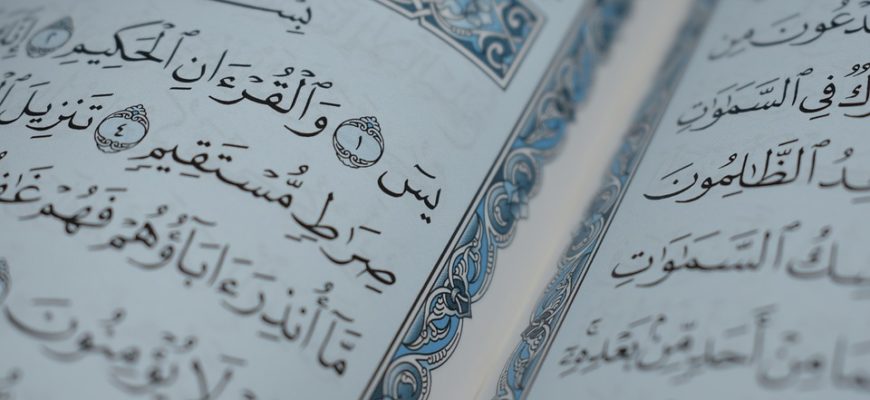 مِن
فِي ٱلسَّمَٰوَٰتِ
ٱلظَّٰلِمُونَ
ٱلسَّمَٰوَٰتِ
مِنْ أَحَدٍ مِّنۢ بَعْدِهِۦٓۚ
بِسْ
يسٓ ١ وَٱلْقُرْءَانِ ٱلْحَكِيمِ ٢
صِرَٰطٍ مُّسْتَقِيمٍ ٤ تَنزِيلَ
مَّآ أُنذِرَ ءَابَآؤُهُمْ فَهُمْ
لَا يُؤْمِنُونَ